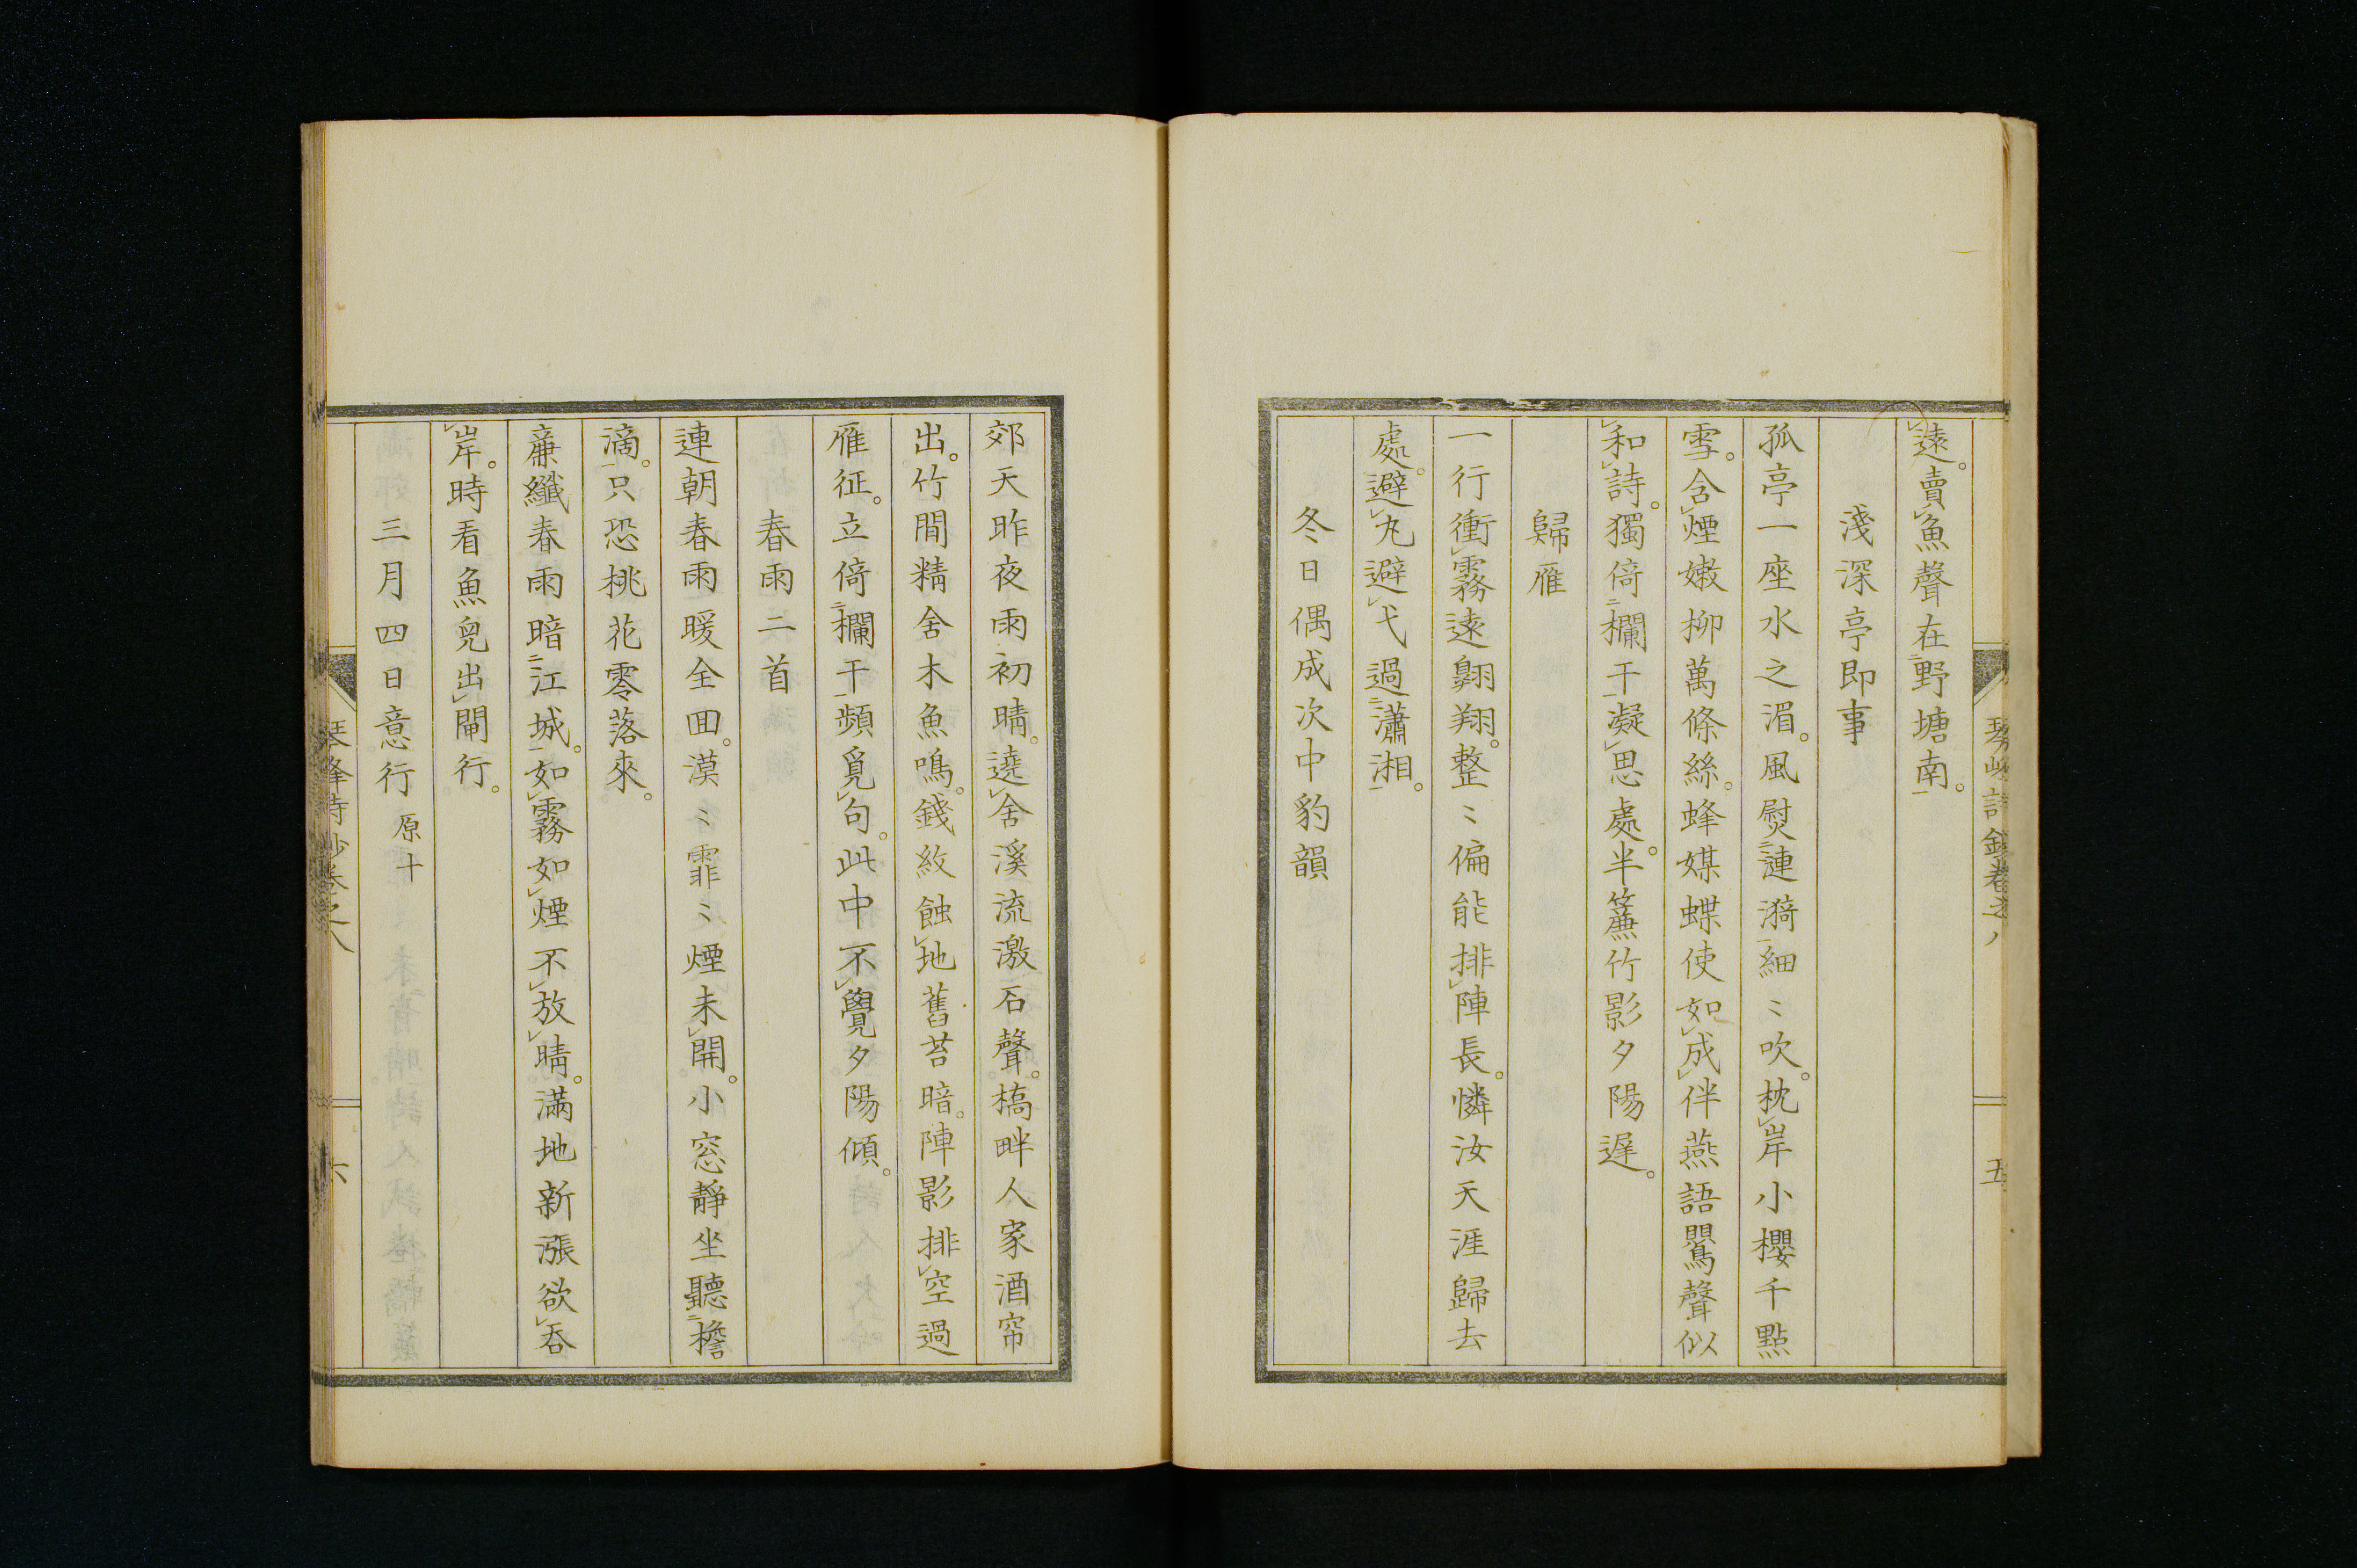 遠。賣魚聲在野塘南。
淺深亭即事
孤亭一座水之湄。風熨連漪細〻吹。枕岸小櫻千點
雪。含煙嫩柳萬條絲。蜂媒蝶使如成伴燕語鸎聲似
和詩。獨倚欄干凝思處。半簾竹影夕陽遲。
歸雁
一行衝霧遠翺翔。整〻偏能排陣長。憐汝天涯歸去
處。避丸避弋過瀟湘。
冬日偶成次中豹韻
五
郊天昨夜雨初晴。遶舍溪流激石聲。橋畔人家酒帘
出。竹間精舍木魚鳴。錢紋蝕地舊苔暗。陣影排空過
雁征。立倚欄干頻覓句。此中不覺夕陽傾。
春雨二首
連朝春雨暖全回。漠〻霏〻煙未開。小窓靜坐聽檐
滴。只恐桃花零落來。
廉纖春雨暗江城。如霧如煙不放晴。滿地新漲欲吞
岸。時看魚兒出閘行。
三月四日意行 原十
琴峰詩鈔卷之八
六